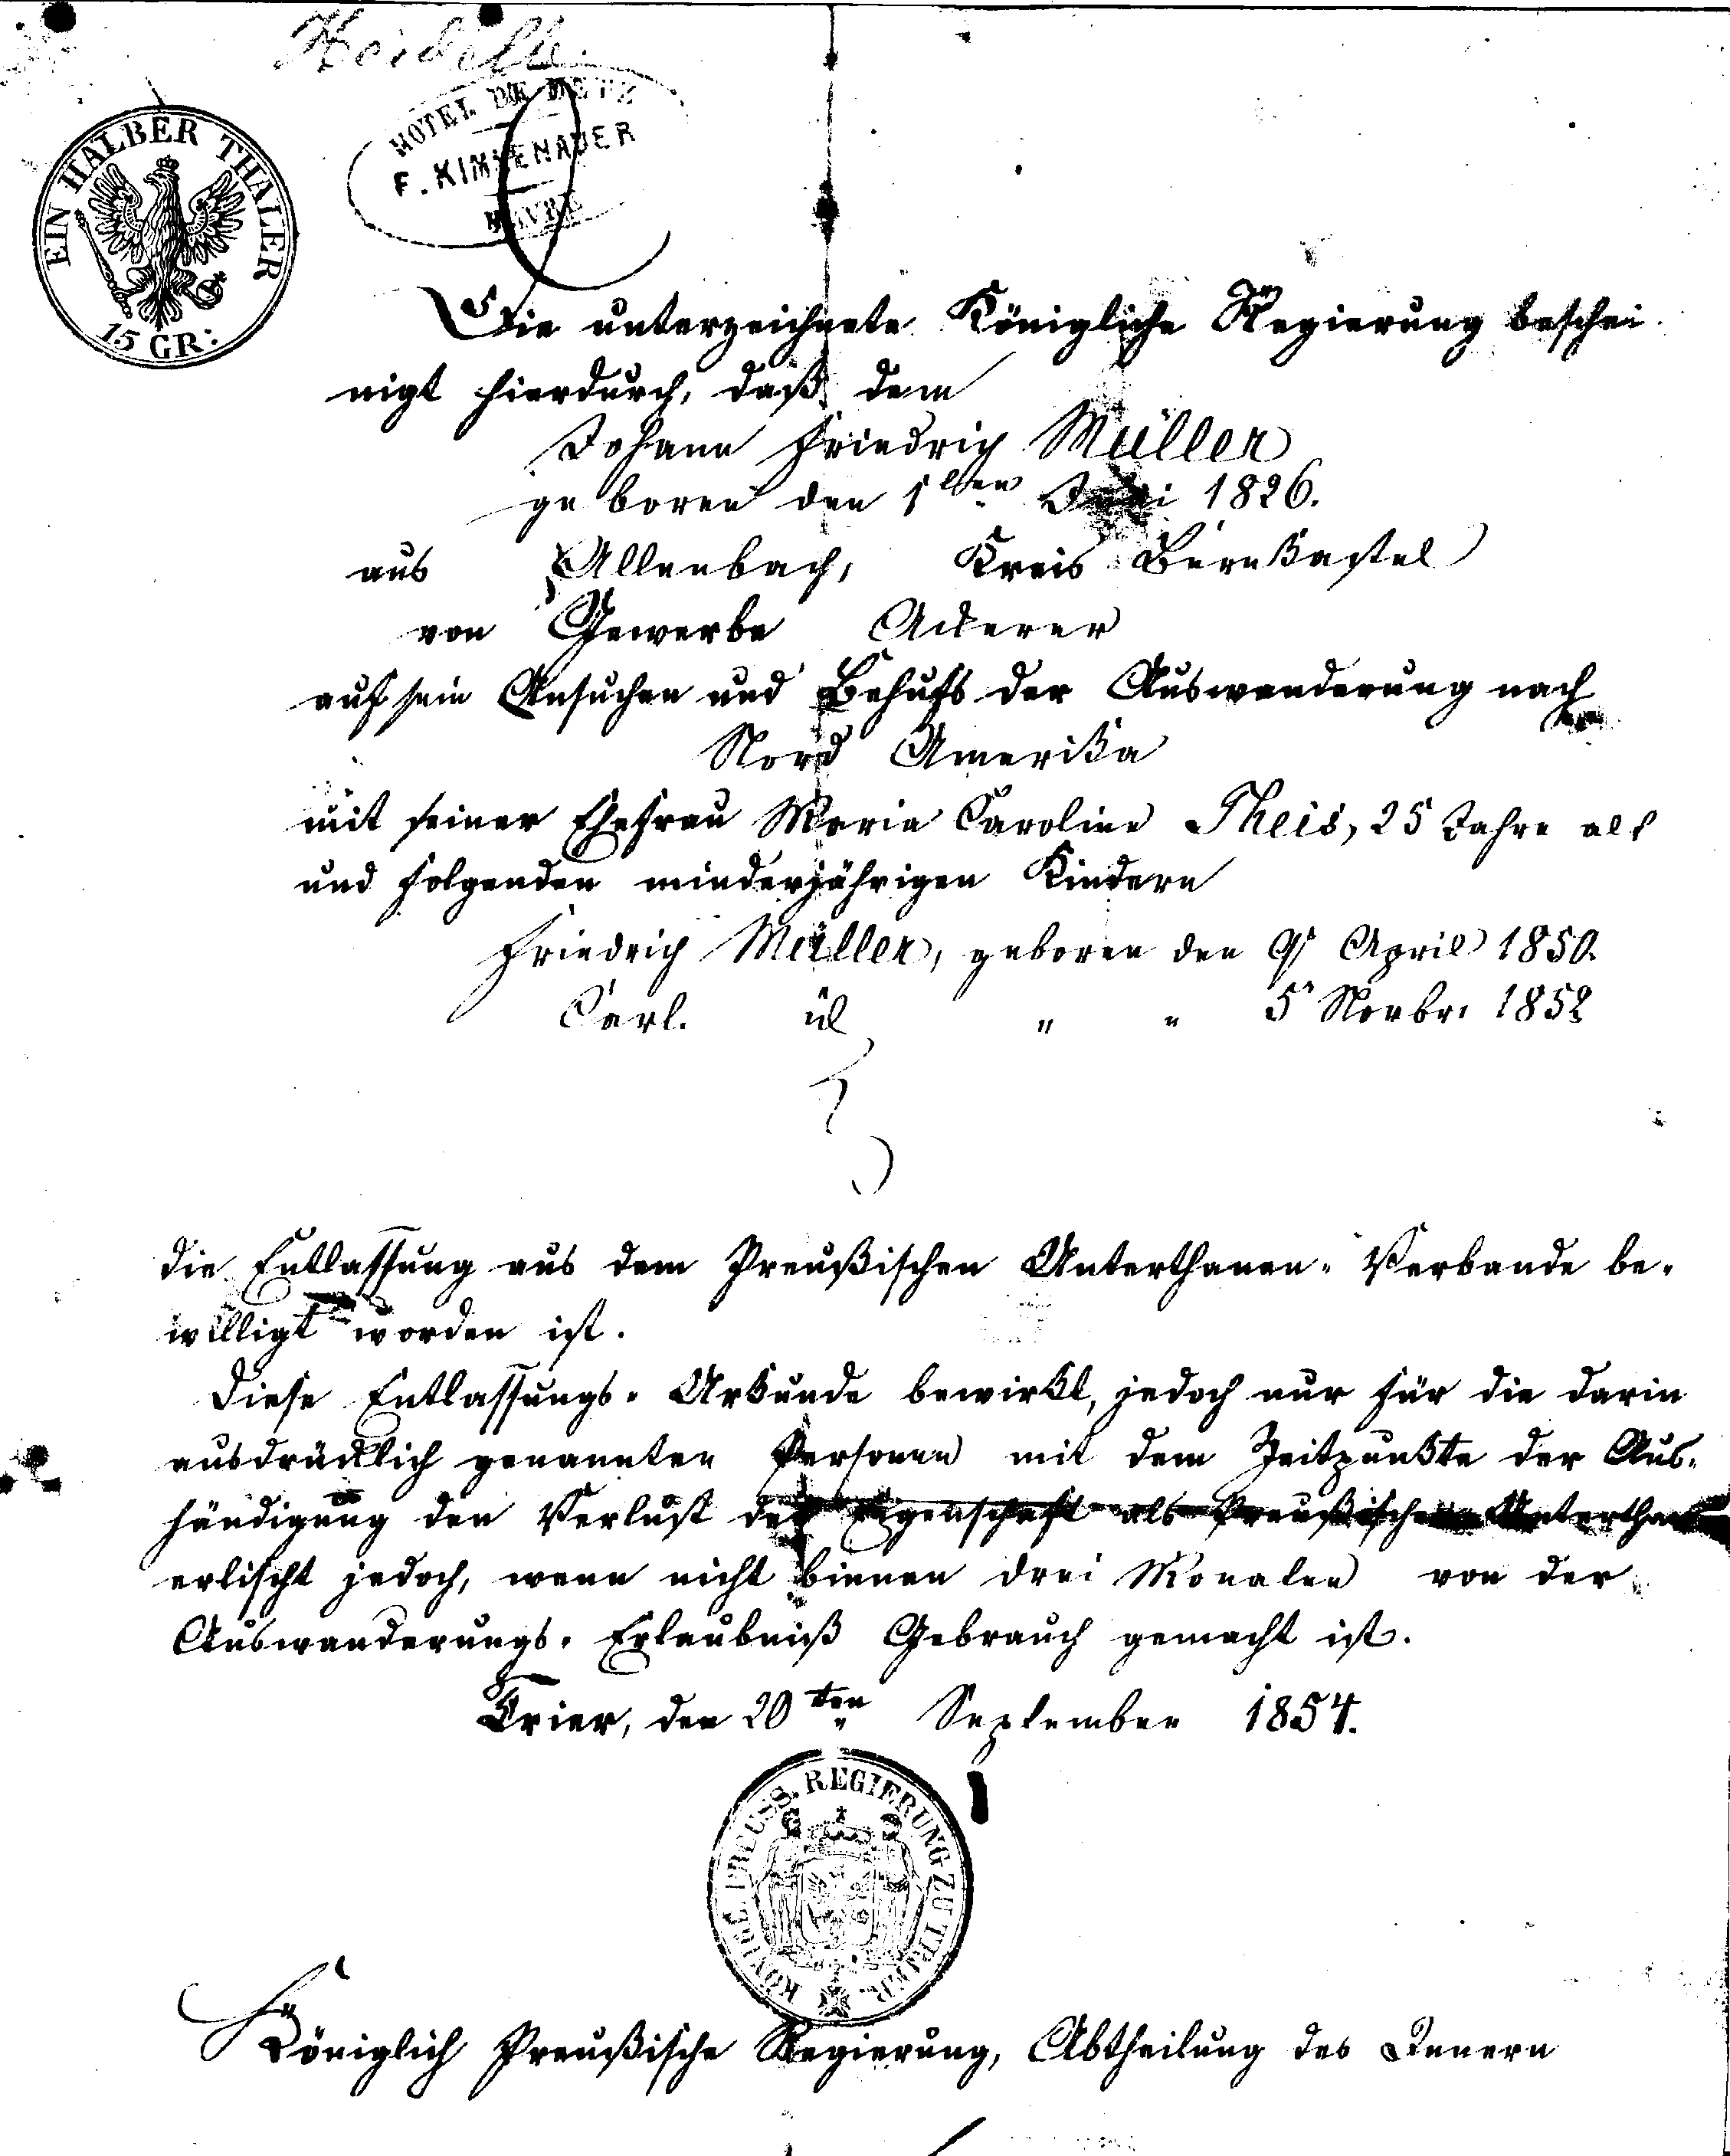 HOTEL DE METZ
F. KIMMENAUER
HAVRE
EIN HALBER THALER
15 GR:
Die unterzeichnete Königliche Regierung beschei
nigt hierdurch, daß dem
Johann Friedrich Müller
geboren den 1ten 1826.
aus Allenbach, Kreis Bernkastel
von Gewerbe Ackerer
auf sein Ansuchen und Behufs der Auswanderung nach
Nord Amerika
mit seiner Ehefrau Maria Caroline Theis, 25 Jahre alt
und folgenden minderjährigen Kindern
Friedrich Müller, geboren den 9 April 1850.
Carl. id " " 5 Novbr. 1852
die Entlassung aus dem Preußischen Unterthanen-Verbande be-
willigt worden ist.
Diese Entlassungs-Urkunde bewirkt, jedoch nur für die darin
ausdrücklich genannten Personen mit dem Zeitpunkte der Aus-
händigung den Verlust der Eigenschaft als Preußische Unterthan
erlischt jedoch, wenn nicht binnen drei Monaten von der
Auswanderungs-Erlaubniß Gebrauch gemacht ist.
Trier, den 20ten September 1854.
KÖNIGL. PREUSS. REGIERUNG ZU TRIER.
Königlich Preußische Regierung, Abtheilung des Innern